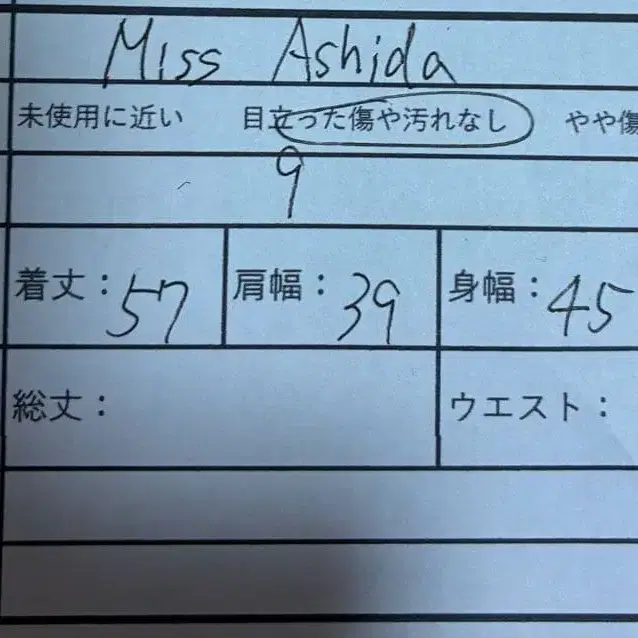 Miss Ashida
未使用に近い 目立った傷や汚れなし やや傷
9
着丈：57 肩幅：39 身幅：45
総丈： ウエスト：